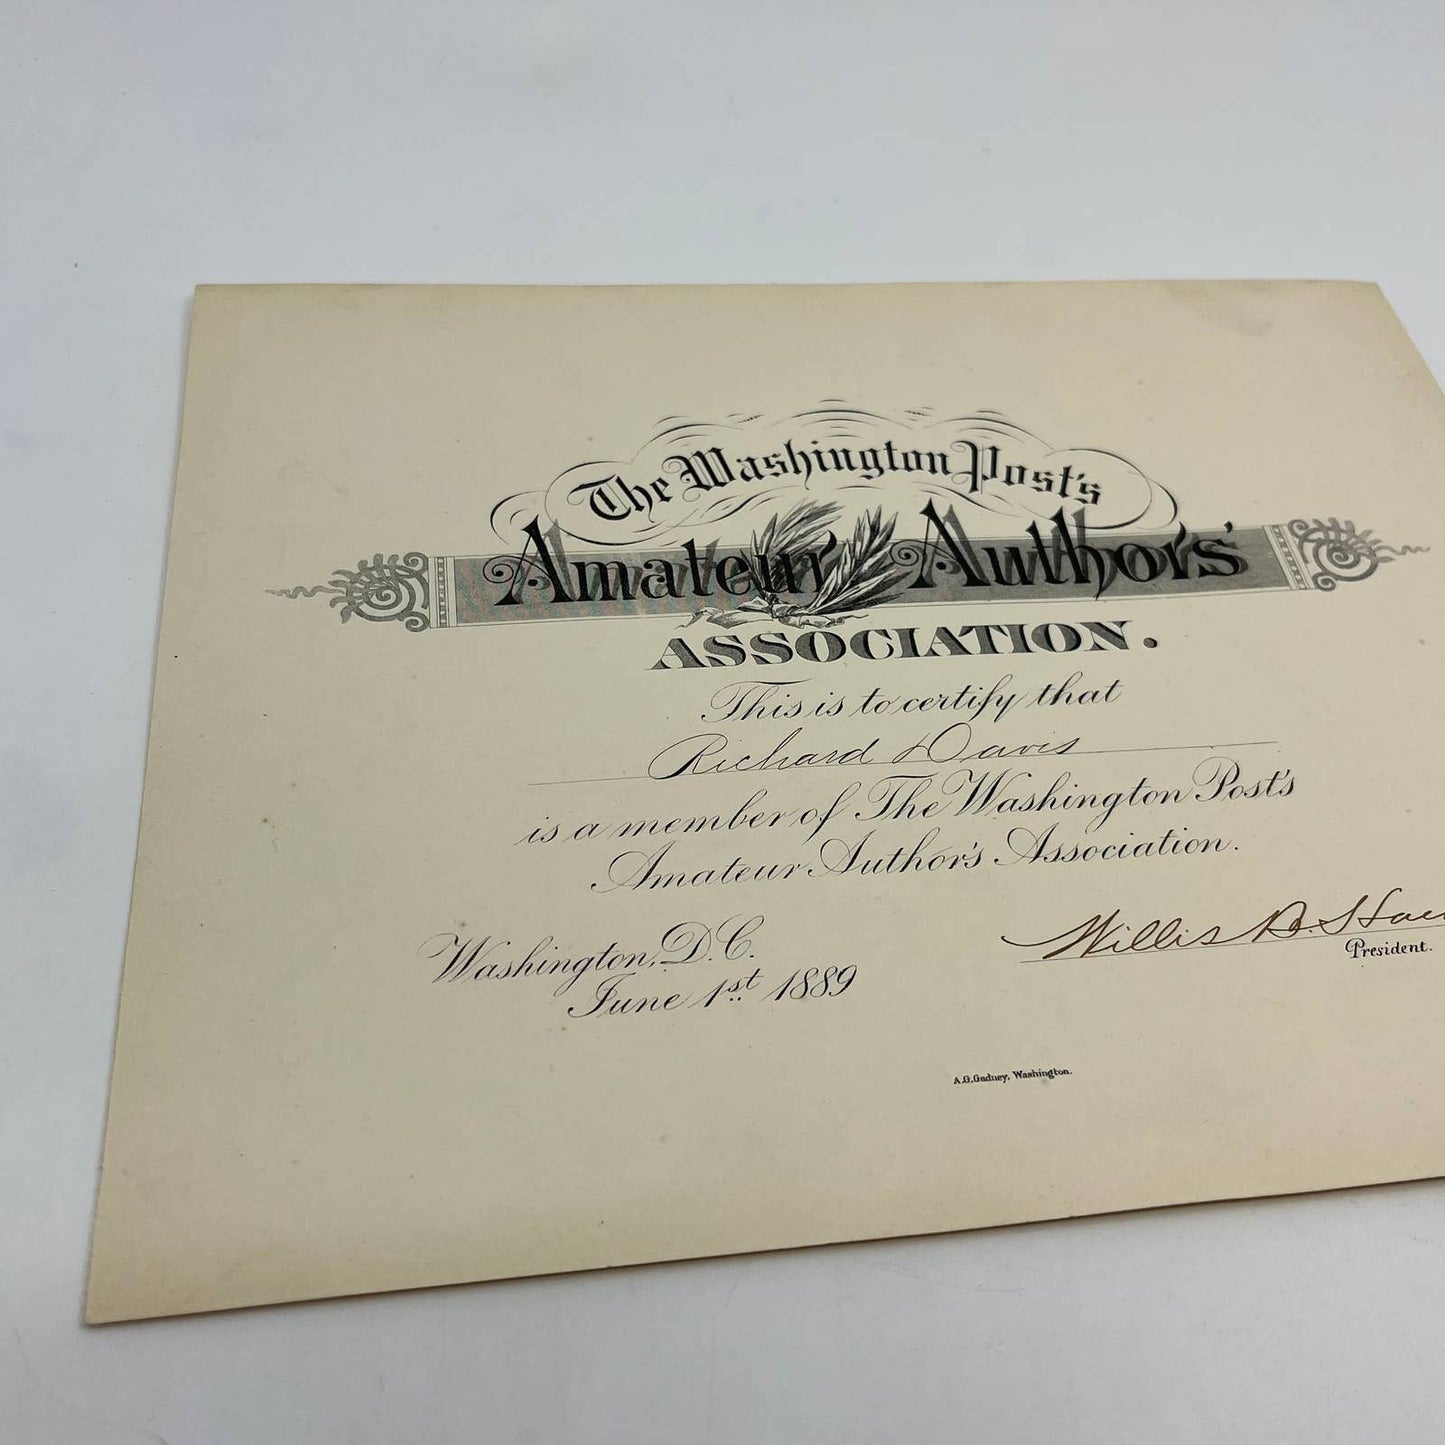 The Washington Post's
Amateur Authors'
ASSOCIATION.
This is to certify that
Richard Davis
is a member of The Washington Post's
Amateur Author's Association.
Willis B.
President.
Washington, D.C.
June 1st 1889
A.G.Gedney, Washington.